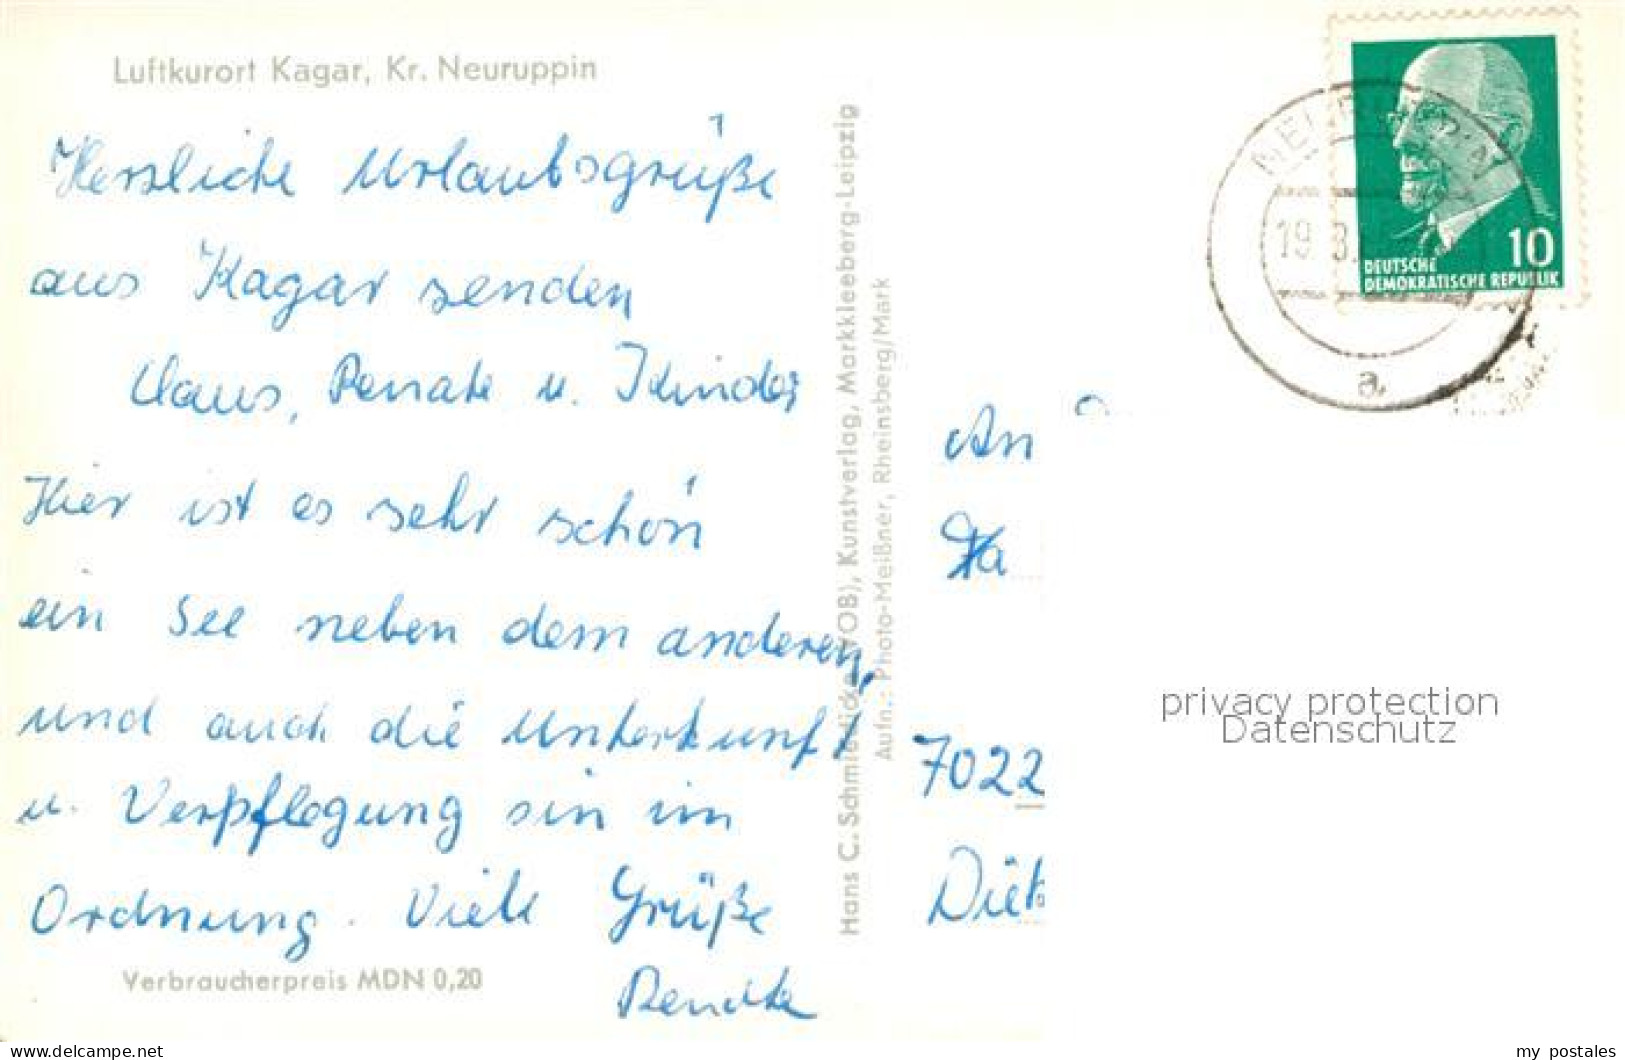 Luftkurort Kagar, Kr. Neuruppin
Herzliche Urlaubsgrüße
aus Kagar senden
Claus, Renate u. Kinder
Hier ist es sehr schön
ein See neben dem anderen,
und auch die Unterkunft
u. Verpflegung sin im
Ordnung. Viele Grüße
Renate
Verbraucherpreis MDN 0,20
Hans C. Schmiedicke (VOB), Kunstverlag, Markkleeberg-Leipzig
Aufn.: Photo-Meißner, Rheinsberg/Mark
10
DEUTSCHE
DEMOKRATISCHE REPUBLIK
NEURUPPIN
19.8.
a
An
7022
privacy protection
Datenschutz
www.delcampe.net
my_postales